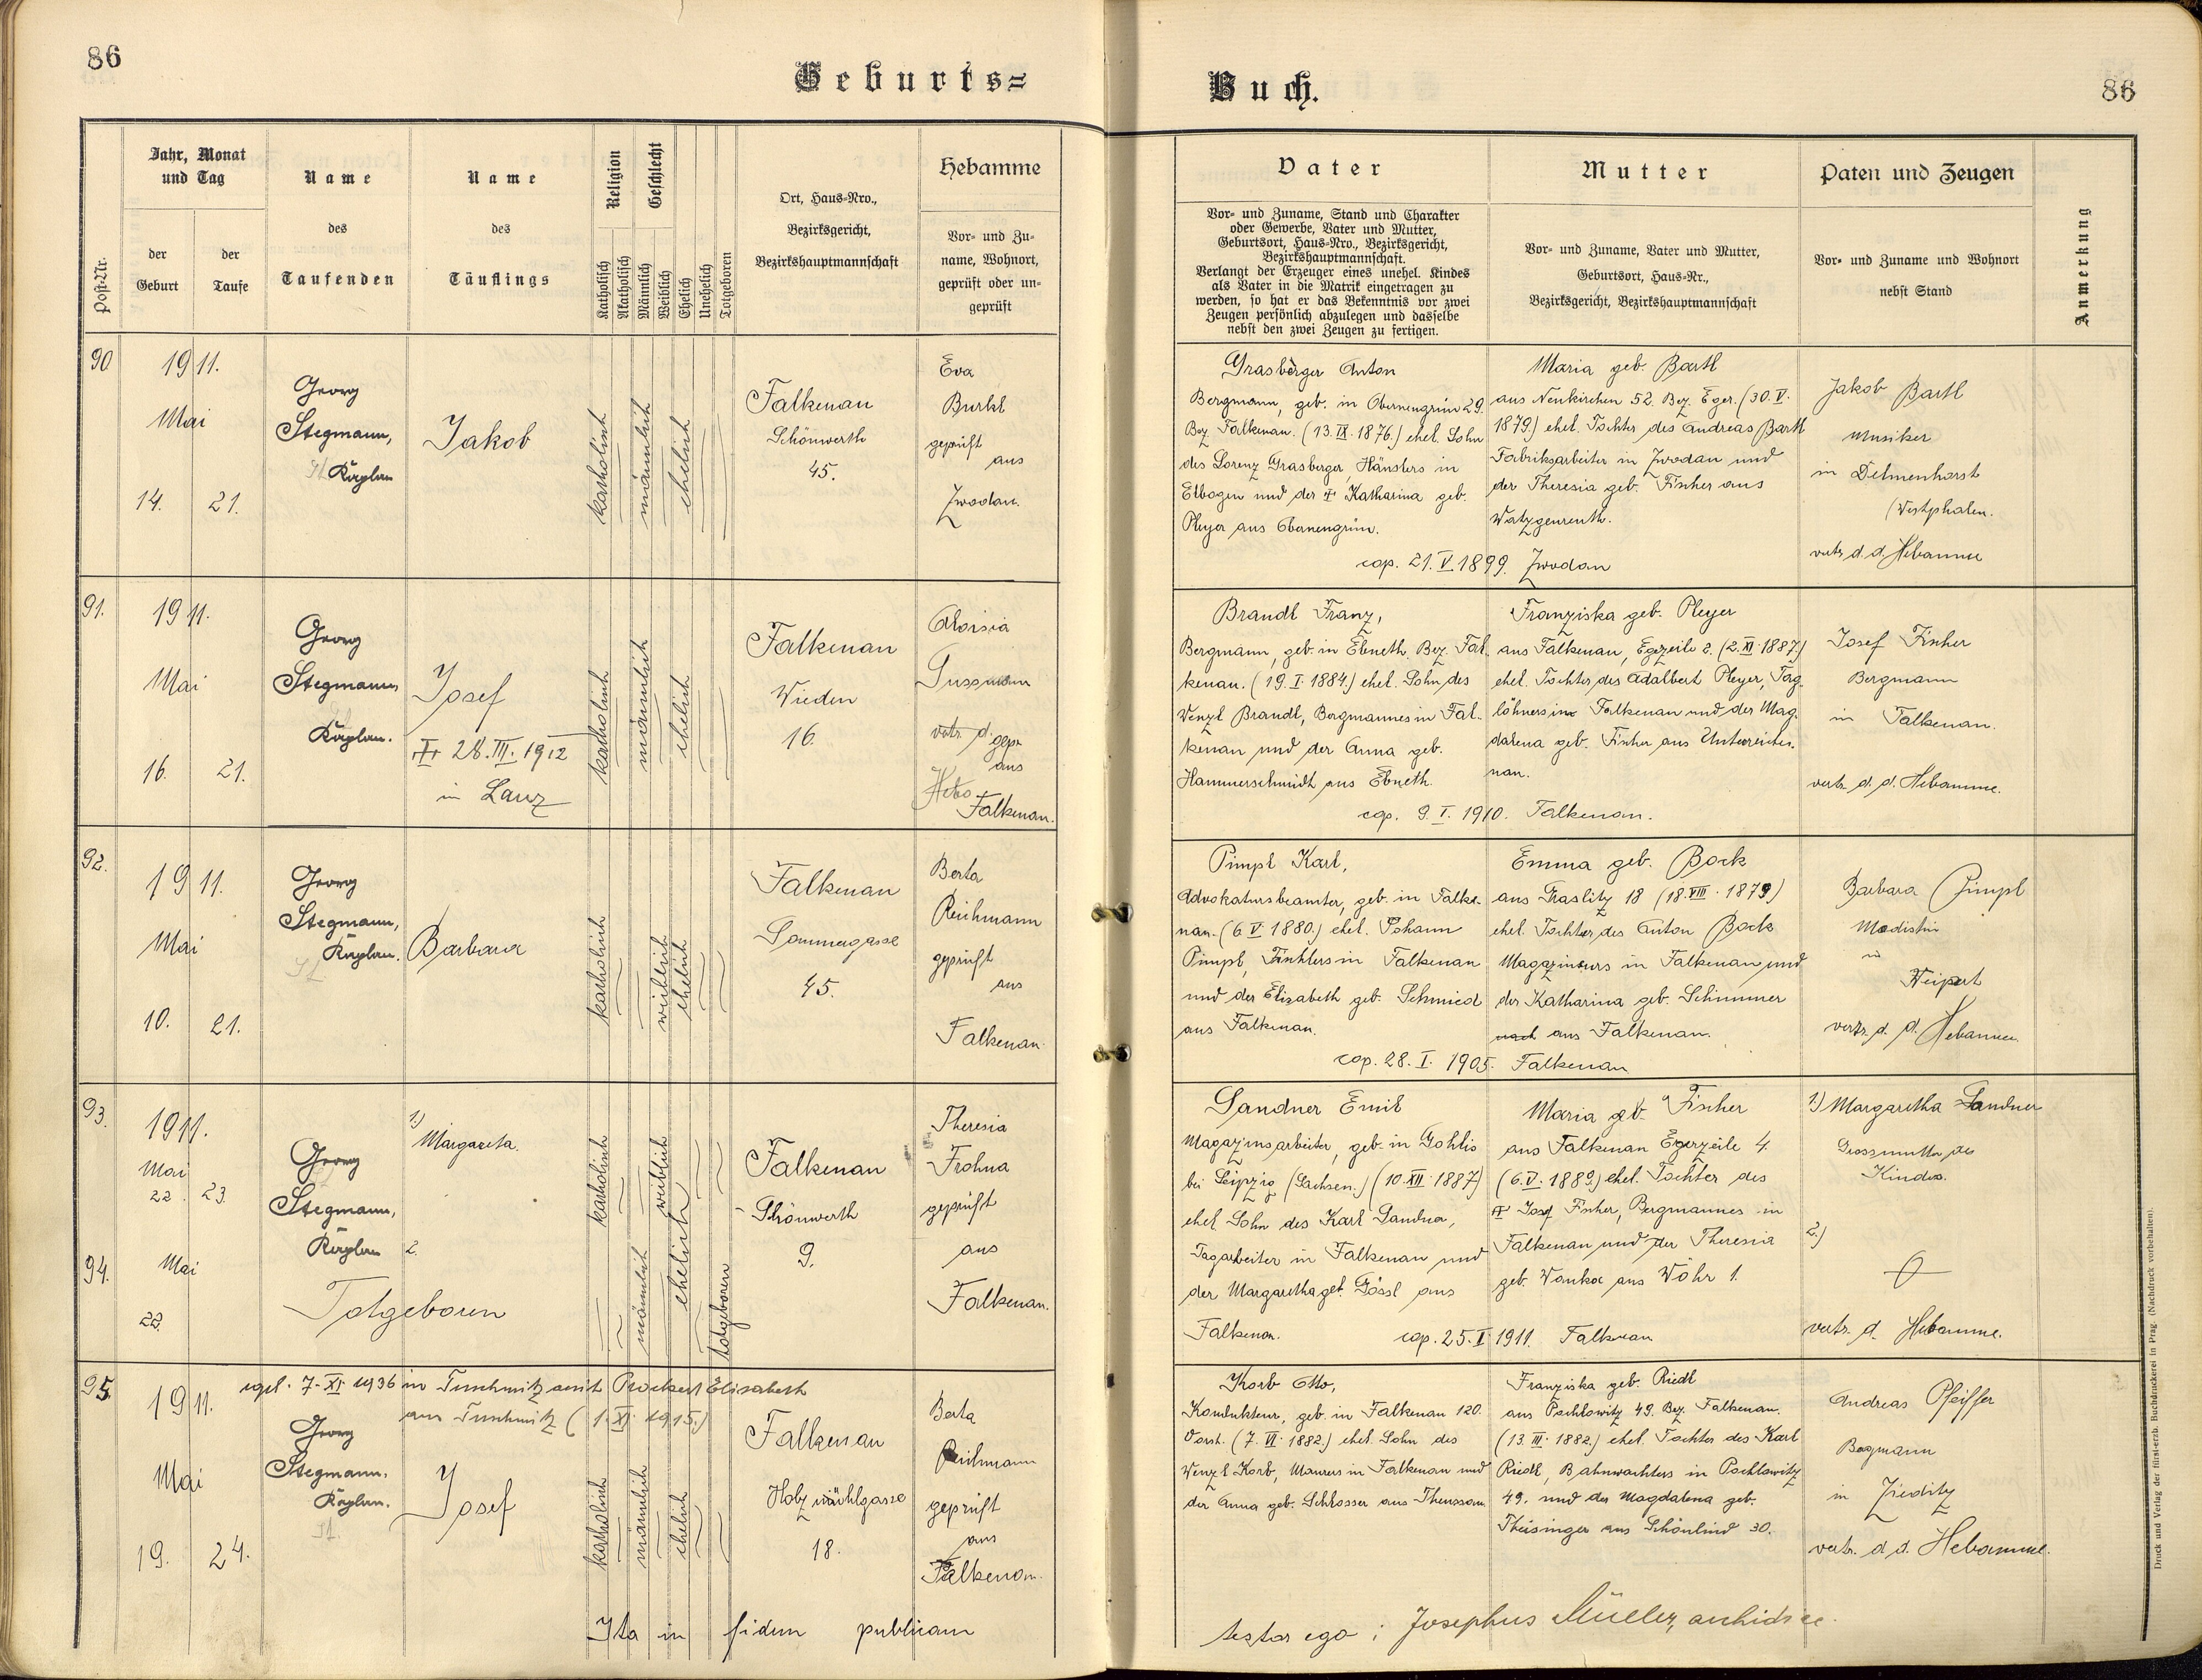 86
Geburts=
Jahr, Monat
und Tag
Post-Nr.
der
Geburt
der
Taufe
Name
des
Taufenden
Name
des
Täuflings
Religion
Geschlecht
Katholisch
Akatholisch
Männlich
Weiblich
Ehelich
Unehelich
Totgeboren
Ort, Haus-Nro.,
Bezirksgericht,
Bezirkshauptmannschaft
Hebamme
Vor- und Zu-
name, Wohnort,
geprüft oder un-
geprüft
90
1911.
Mai
14. 21.
Georg
Stegmann,
Kaplan
Jakob
katholisch
männlich
ehelich
Falkenau
Schönwerth
45.
Eva
Burkl
geprüft
aus
Zwodau.
91.
1911.
Mai
16. 21.
Georg
Stegmann,
Kaplan.
Josef
28. III. 1912
in Lanz
katholisch
männlich
ehelich
Falkenau
Wieden
16.
Aloisia
vertr. d.
gepr.
aus
Falkenau.
92.
1911.
Mai
10. 21.
Georg
Stegmann,
Kaplan.
Barbara
katholisch
weiblich
ehelich
Falkenau
Sommergasse
45.
Berta
Reichmann
geprüft
aus
Falkenau.
93.
1911.
Mai
22. 23.
Georg
Stegmann,
Kaplan
1.)
Margareta.
katholisch
weiblich
ehelich
Falkenau
Schönwerth
9.
Theresia
Frohna
geprüft
aus
Falkenau.
94.
Mai
22.
2.
Totgeboren
männlich
totgeboren
95.
1911.
Mai
19. 24.
7. XI. 1936 in Tuschmitz mit Elisabeth
aus Tuschmitz (1. XI. 1915.)
Georg
Stegmann.
Kaplan.
Josef
katholisch
männlich
ehelich
Falkenau
Holzmühlgasse
18.
Berta
Reichmann
geprüft
aus
Falkenau.
Ita in fidem publicam
Buch.
86
Vater
Vor- und Zuname, Stand und Charakter
oder Gewerbe, Vater und Mutter,
Geburtsort, Haus-Nro., Bezirksgericht,
Bezirkshauptmannschaft.
Verlangt der Erzeuger eines unehel. Kindes
als Vater in die Matrik eingetragen zu
werden, so hat er das Bekenntnis vor zwei
Zeugen persönlich abzulegen und dasselbe
nebst den zwei Zeugen zu fertigen.
Mutter
Vor- und Zuname, Vater und Mutter,
Geburtsort, Haus-Nr.,
Bezirksgericht, Bezirkshauptmannschaft
Paten und Zeugen
Vor- und Zuname und Wohnort
nebst Stand
Anmerkung
Grasberger Anton
Bergmann, geb. in Obernengrün 29.
Bez. Falkenau. (13. IX. 1876.) ehel. Sohn
des Lorenz Grasberger, Häuslers in
Elbogen und der Katharina geb.
Pleyer aus Obernengrün.
Maria geb. Bartl
aus Neukirchen 52. Bez. Eger. (30. V.
1879.) ehel. Tochter des Andreas Bartl
Fabriksarbeiter in Zwodau und
der Theresia geb. Fischer aus
Watzgenreuth.
cop. 21. V. 1899. Zwodau
Jakob Bartl
Musiker
in Delmenhorst
(Westphalen.
vertr. d. d. Hebamme
Brandl Franz,
Bergmann, geb. in Ebneth. Bez. Fal-
kenau. (19. I. 1884.) ehel. Sohn des
Wenzl Brandl, Bergmannes in Fal-
kenau und der Anna geb.
Hammerschmidt aus Ebneth.
Franziska geb. Pleyer
aus Falkenau, Egerzeile 2. (2. XI. 1887.)
ehel. Tochter des Adalbert Pleyer, Tag-
löhners in Falkenau und der Mag-
dalena geb. Fischer aus Unterreiche-
nau.
cop. 9. I. 1910. Falkenau.
Josef Fischer
Bergmann
in Falkenau.
vertr. d. d. Hebamme.
Pimpl Karl,
Advokatursbeamter, geb. in Falke-
nau. (6. V. 1880.) ehel. Johann
Pimpl, Tischlers in Falkenau
und der Elisabeth geb. Schmied
aus Falkenau.
Emma geb. Bock
aus Graslitz 18 (18. VIII. 1879)
ehel. Tochter des Anton Bock
Magazineurs in Falkenau und
der Katharina geb. Schimmer
aus Falkenau.
cop. 28. I. 1905. Falkenau
Barbara Pimpl
Modistin
in
Weipert
vertr. d. d. Hebamme.
Sandner Emil
Magazinsarbeiter, geb. in Gohlis
bei Leipzig (Sachsen.) (10. XII. 1887)
ehel. Sohn des Karl Sandner,
Tagarbeiter in Falkenau und
der Margaretha geb. Gössl aus
Falkenau.
Maria geb. Fischer
aus Falkenau Egerzeile 4.
(6. V. 1889.) ehel. Tochter des
Josef Fischer, Bergmannes in
Falkenau und der Theresia
geb. Wanka aus Wöhr 1.
cop. 25. I. 1911. Falkenau
1.) Margaretha Sandner
Grossmutter des
Kindes.
2.)
vertr. d. Hebamme.
Korb Otto,
Kondukteur, geb. in Falkenau 120.
Vorst. (7. VI. 1882.) ehel. Sohn des
Wenzl Korb, Maurers in Falkenau und
der Anna geb. Schlosser aus Theussau.
Franziska geb. Riedl
aus Pochlowitz 49. Bez. Falkenau.
(13. III. 1882.) ehel. Tochter des Karl
Riedl, Bahnwächters in Pochlowitz
49. und der Magdalena geb.
Theisinger aus Schönlind 30.
Andreas Pfeiffer
Bergmann
in Zieditz
vertr. d. d. Hebamme.
testor ego: Josephus Müller,
Druck und Verlag der fürst-erzb. Buchdruckerei in Prag. (Nachdruck vorbehalten).